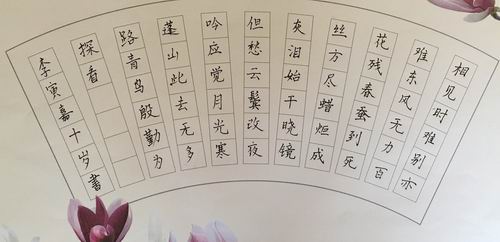 相见时难别亦
难东风无力百
花残春蚕到死
丝方尽蜡炬成
灰泪始干晓镜
但愁云鬓改夜
吟应觉月光寒
蓬山此去无多
路青鸟殷勤为
探看
李寅嘉十岁書